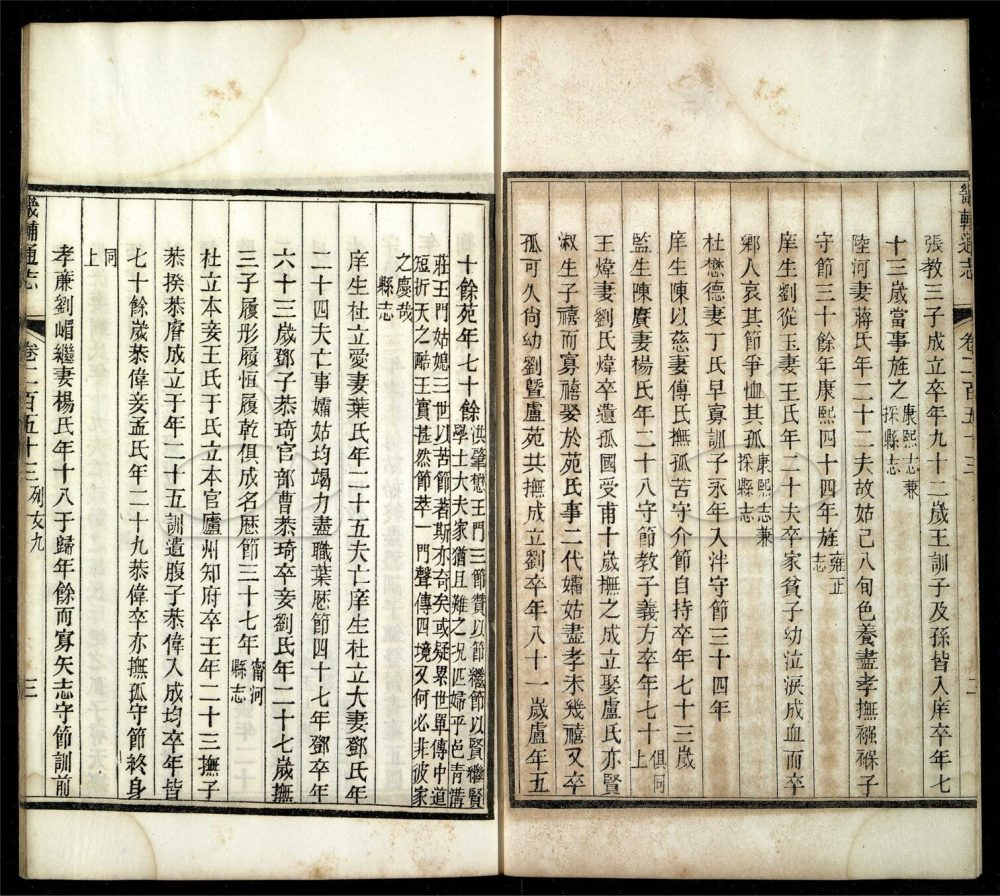 畿輔通志
卷二百五十三
二
張教三子成立卒年九十二歲王訓子及孫皆入庠卒年七
十三歲當事旌之康熙志兼
採縣志
陸河妻蔣氏年二十二夫故姑已八旬色養盡孝撫襁褓子
守節三十餘年康熙四十四年旌雍正
志
庠生劉從玉妻王氏年二十夫卒家貧子幼泣淚成血而卒
鄉人哀其節爭恤其孤康熙志兼
採縣志
杜懋德妻丁氏早寡訓子永年入泮守節三十四年
庠生陳以慈妻傅氏撫孤苦守介節自持卒年七十三歲
監生陳賡妻楊氏年二十八守節教子義方卒年七十俱同
上
王煒妻劉氏煒卒遺孤國受甫十歲撫之成立娶盧氏亦賢
淑生子禧而寡禧娶於苑氏事二代孀姑盡孝未幾禧又卒
孤可久尙幼劉暨盧苑共撫成立劉卒年八十一歲盧年五
十餘苑年七十餘洪肇懋王門三節贊以節繼節以賢繼賢
學士大夫家猶且難之況匹婦乎邑青溝
莊王門姑媳三世以苦節著斯亦奇矣或疑累世單傳中道
短折天之酷王實甚然節萃一門聲傳四境又何必非彼家
之慶哉
縣志
庠生杜立愛妻葉氏年二十五夫亡庠生杜立大妻鄧氏年
二十四夫亡事孀姑均竭力盡職葉歷節四十七年鄧卒年
六十三歲鄧子恭琦官部曹恭琦卒妾劉氏年二十七歲撫
三子履形履恒履乾俱成名歷節三十七年甯河
縣志
杜立本妾王氏于氏立本官廬州知府卒王年二十三撫子
恭揆恭膺成立于年二十五訓遺腹子恭偉入成均卒年皆
七十餘歲恭偉妾孟氏年二十九恭偉卒亦撫孤守節終身
同
上
孝廉劉嵋繼妻楊氏年十八于歸年餘而寡矢志守節訓前
畿輔通志
卷二百五十三 列女九
三